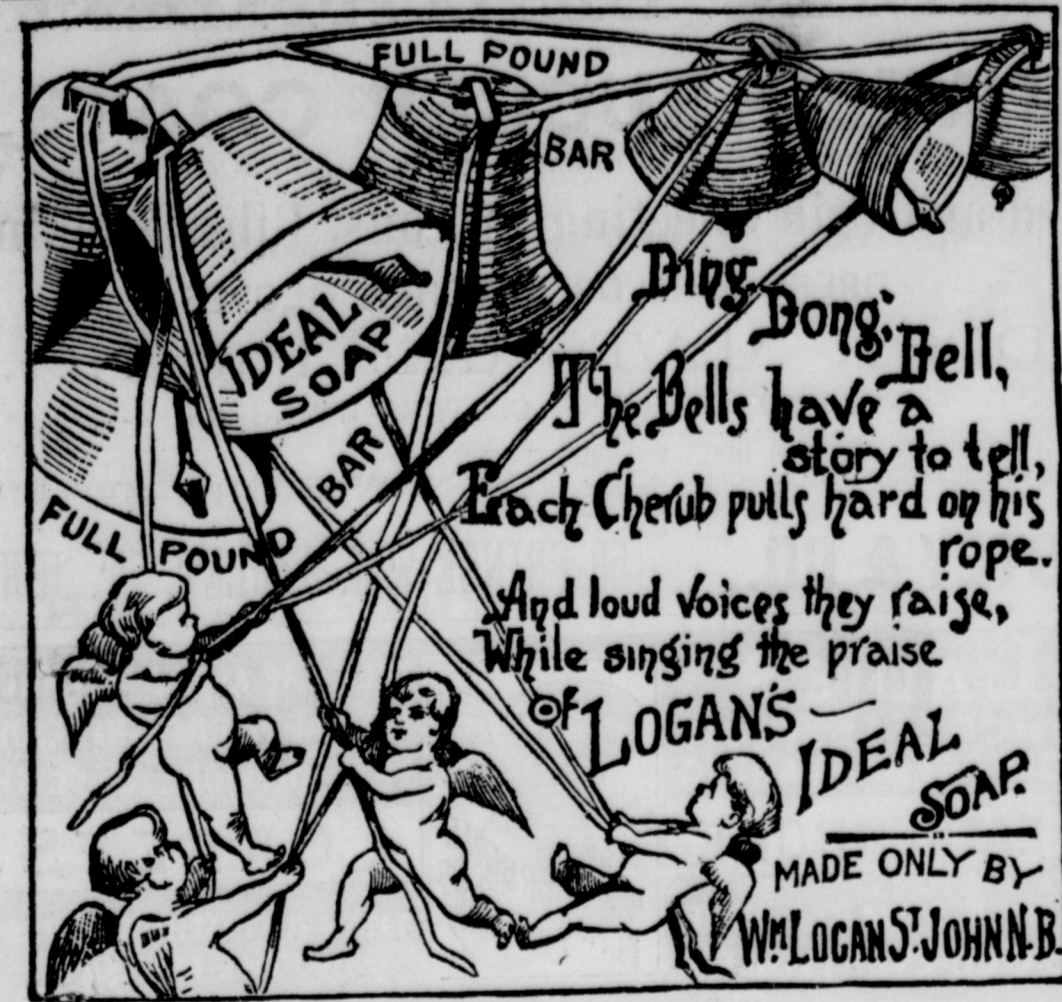 FULL POUND
BAR
IDEAL
SOAP
BAR
FULL POUND
Ding
Dong:
Bell,
The Bells have a
story to tell,
Each Cherub pulls hard on his
rope.
And loud voices they raise,
While singing the praise
of LOGAN'S —
IDEAL
SOAP.
MADE ONLY BY
WM LOGAN ST. JOHN N.B.